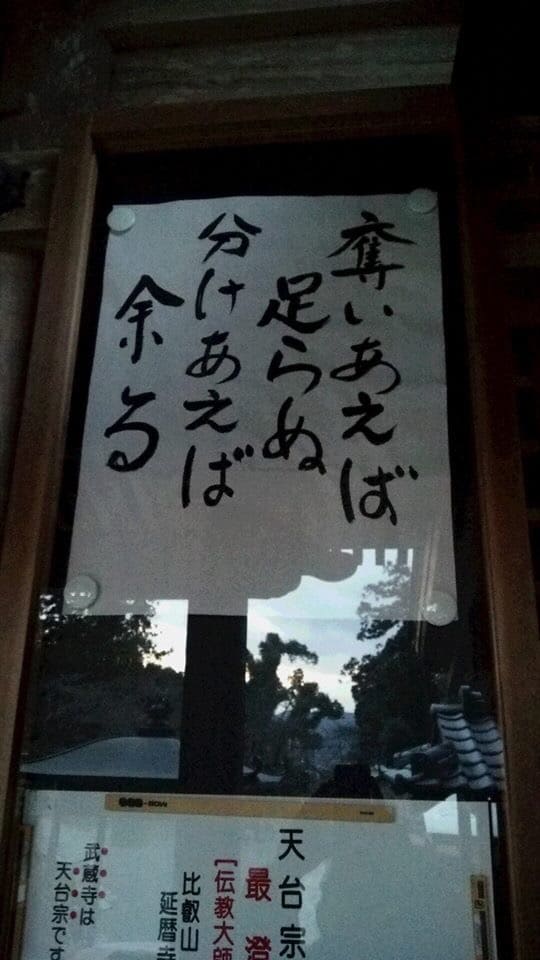 奪いあえば
足らぬ
分けあえば
余る
天台宗
最澄
[伝教大師
比叡山
延暦寺
武蔵寺は
天台宗です